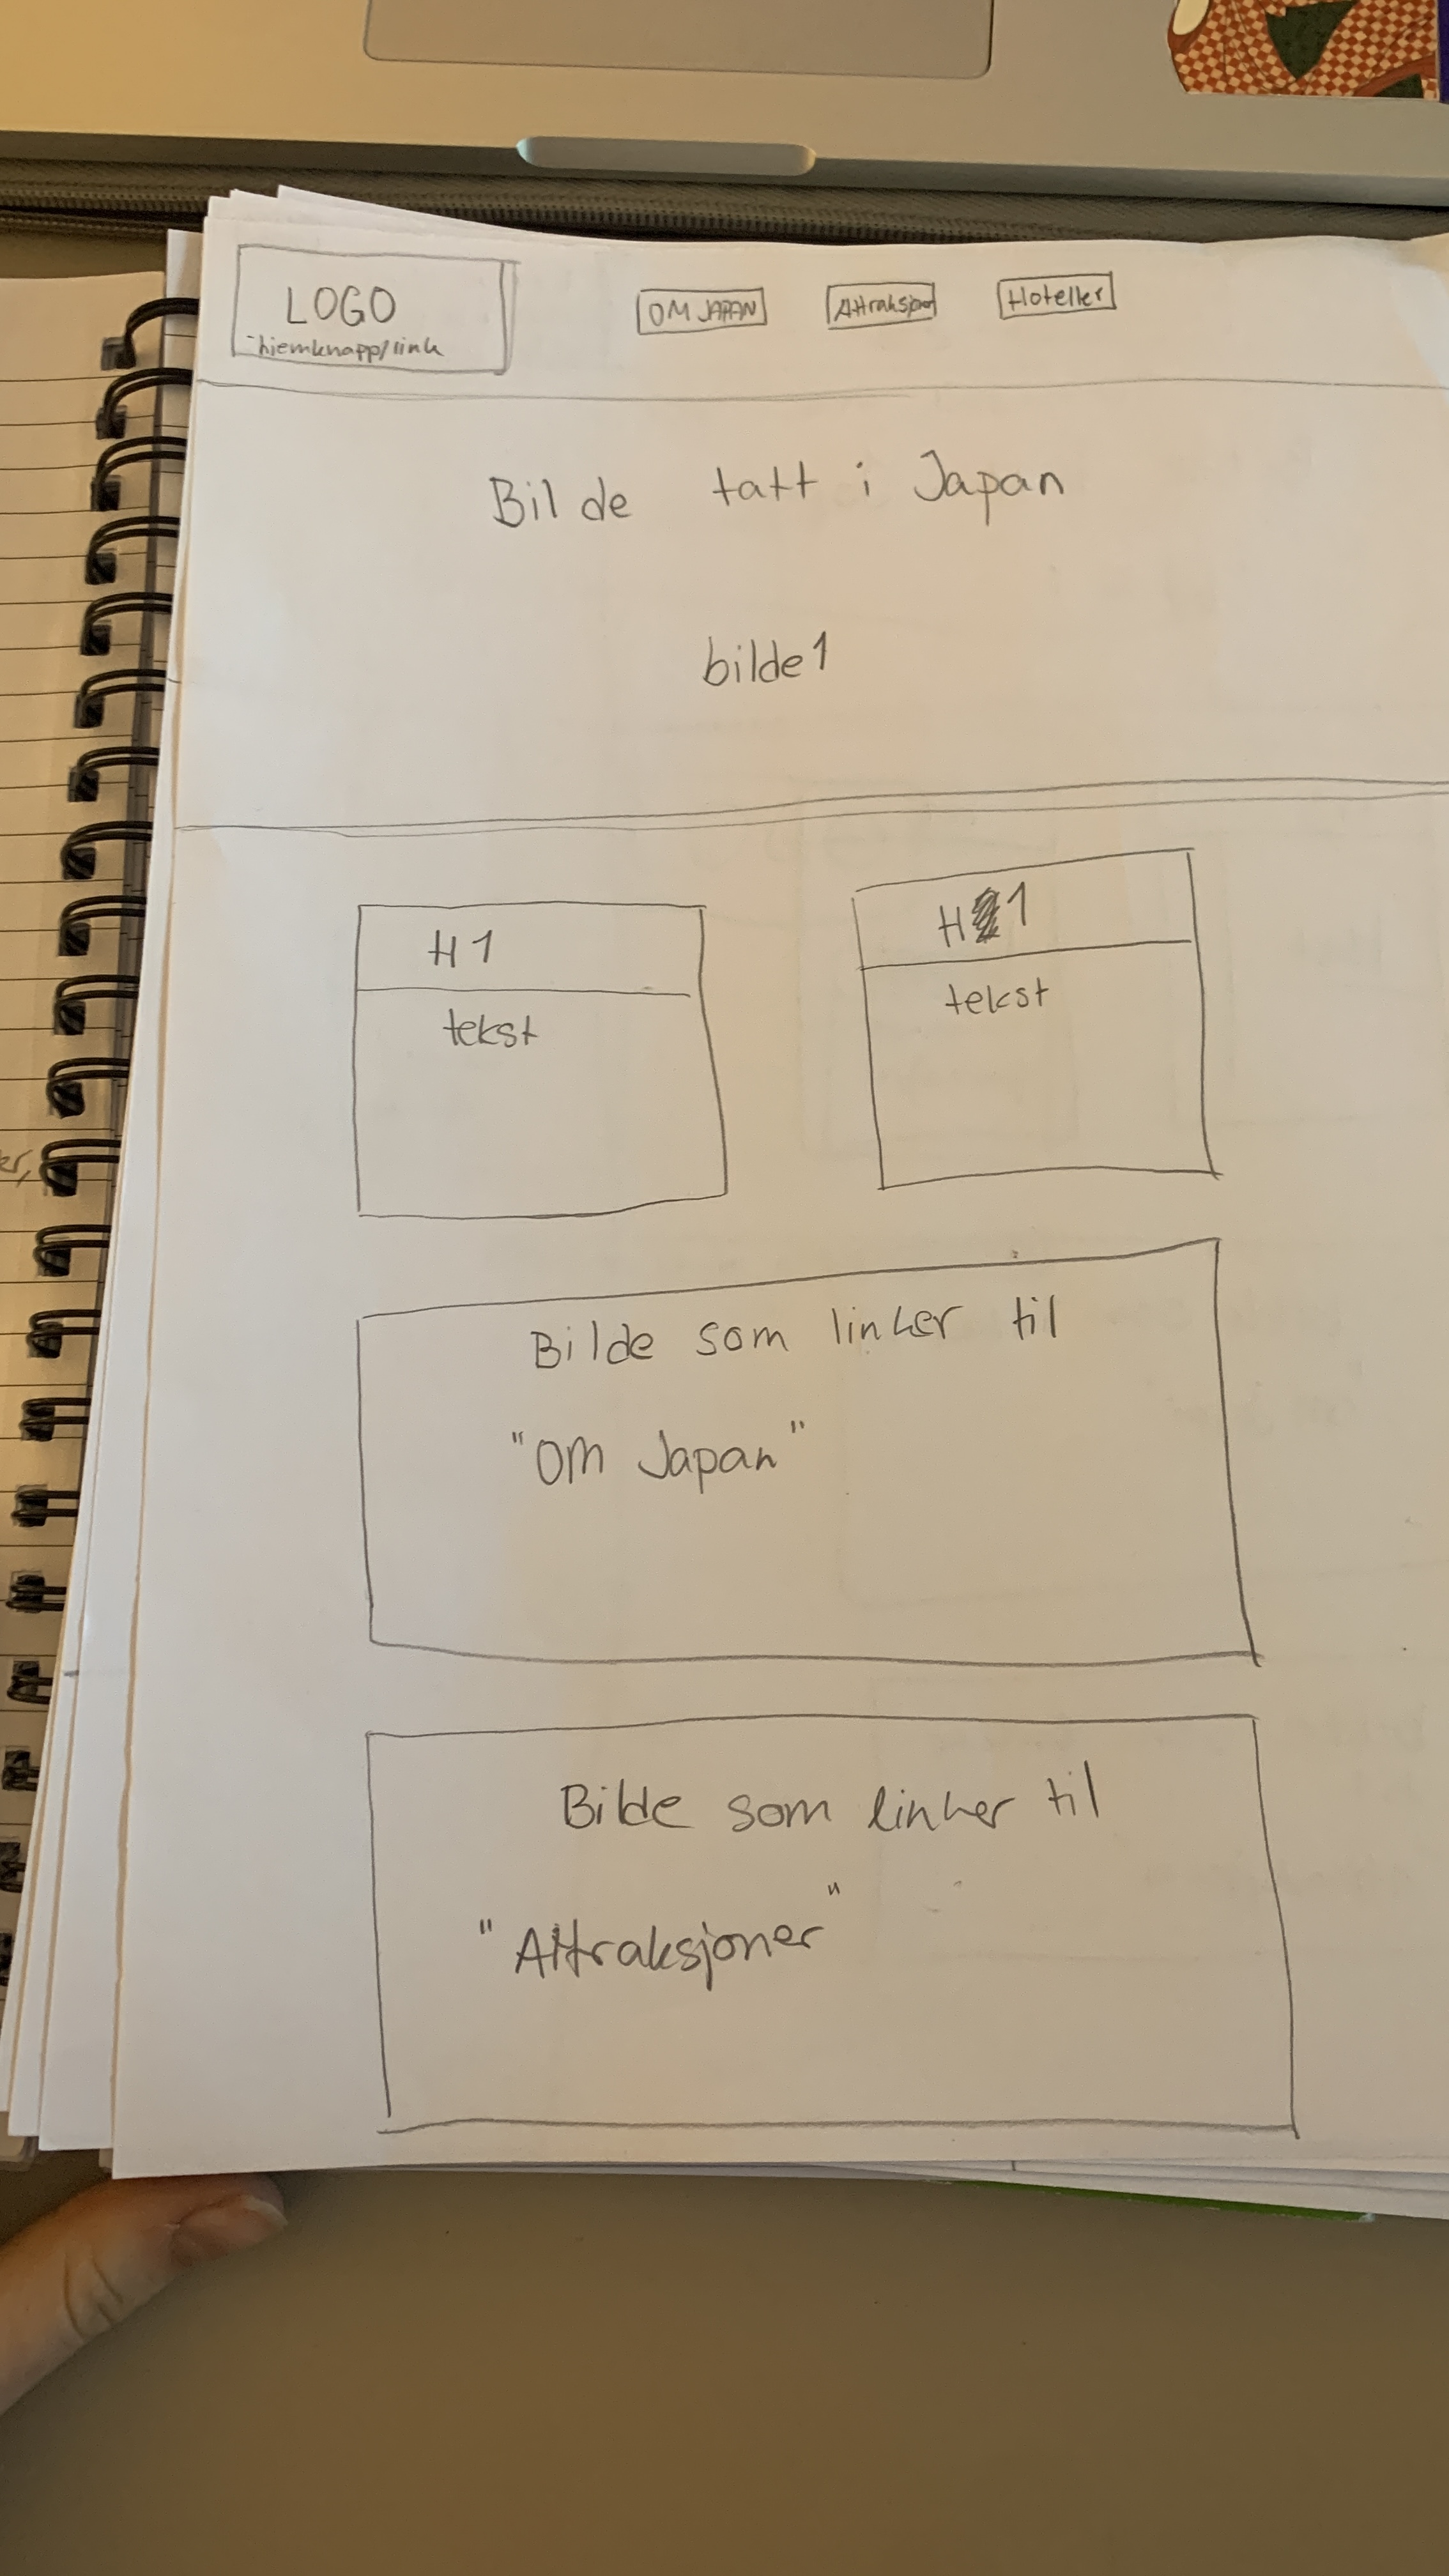 LOGO
-hiemknapp/link
OM JAPAN
Attraksjoner
Hoteller
Bilde tatt i Japan
bilde1
H1
tekst
H1
tekst
Bilde som linker til
"Om Japan"
Bilde som linker til
"Attraksjoner"